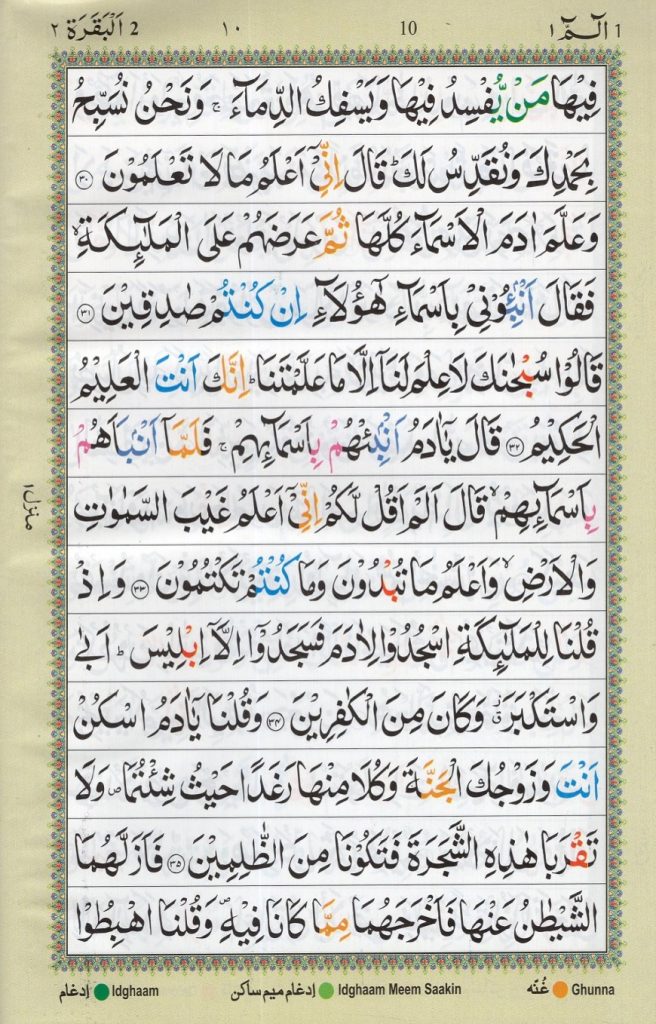 الٓمّٓ ١ 1 10 ١٠ اَلْبَقَرَة ٢ 2
فِيْهَا مَنْ يُّفْسِدُ فِيْهَا وَيَسْفِكُ الدِّمَآءَ ۚ وَنَحْنُ نُسَبِّحُ
بِحَمْدِكَ وَنُقَدِّسُ لَكَ ؕ قَالَ اِنِّيْۤ اَعْلَمُ مَا لَا تَعْلَمُوْنَ ﴿۳۰﴾
وَعَلَّمَ اٰدَمَ الْاَسْمَآءَ كُلَّهَا ثُمَّ عَرَضَهُمْ عَلَى الْمَلٰٓئِكَةِ ۙ
فَقَالَ اَنْۢبِـُٔوْنِيْ بِاَسْمَآءِ هٰۤؤُلَآءِ اِنْ كُنْتُمْ صٰدِقِيْنَ ﴿۳۱﴾
قَالُوْا سُبْحٰنَكَ لَا عِلْمَ لَنَاۤ اِلَّا مَا عَلَّمْتَنَا ؕ اِنَّكَ اَنْتَ الْعَلِيْمُ
الْحَكِيْمُ ﴿۳۲﴾ قَالَ يٰۤاٰدَمُ اَنْۢبِئْهُمْ بِاَسْمَآئِهِمْ ۚ فَلَمَّاۤ اَنْۢبَاَهُمْ
بِاَسْمَآئِهِمْ ۙ قَالَ اَلَمْ اَقُلْ لَّكُمْ اِنِّيْۤ اَعْلَمُ غَيْبَ السَّمٰوٰتِ
وَالْاَرْضِ ۙ وَاَعْلَمُ مَا تُبْدُوْنَ وَمَا كُنْتُمْ تَكْتُمُوْنَ ﴿۳۳﴾ وَاِذْ
قُلْنَا لِلْمَلٰٓئِكَةِ اسْجُدُوْا لِاٰدَمَ فَسَجَدُوْۤا اِلَّاۤ اِبْلِيْسَ ؕ اَبٰى
وَاسْتَكْبَرَ ۫ۗ وَكَانَ مِنَ الْكٰفِرِيْنَ ﴿۳۴﴾ وَقُلْنَا يٰۤاٰدَمُ اسْكُنْ
اَنْتَ وَزَوْجُكَ الْجَنَّةَ وَكُلَا مِنْهَا رَغَدًا حَيْثُ شِئْتُمَا ۪ وَلَا
تَقْرَبَا هٰذِهِ الشَّجَرَةَ فَتَكُوْنَا مِنَ الظّٰلِمِيْنَ ﴿۳۵﴾ فَاَزَلَّهُمَا
الشَّيْطٰنُ عَنْهَا فَاَخْرَجَهُمَا مِمَّا كَانَا فِيْهِ ۪ وَقُلْنَا اهْبِطُوْا
منزل ۱
غُنّه Ghunna ادغام میم ساکن Idghaam Meem Saakin ادغام Idghaam